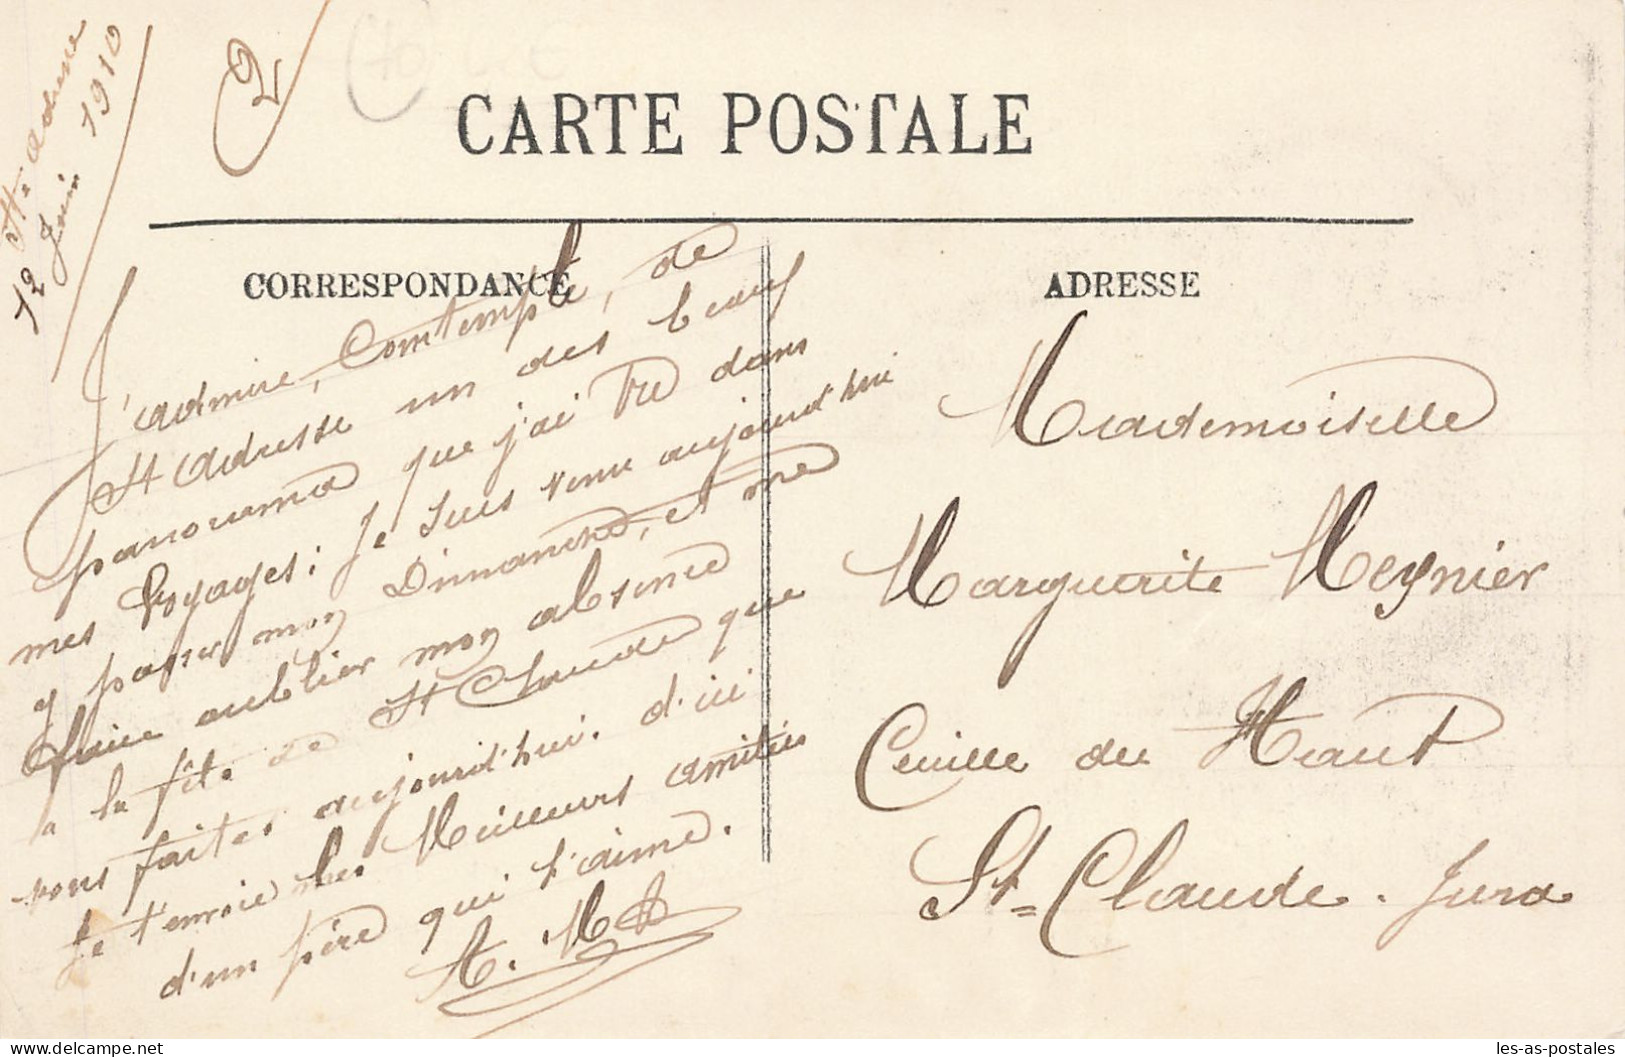 St-Adresse
12 Juin 1910
2
CARTE POSTALE
CORRESPONDANCE
ADRESSE
J'admire, Comtemple, de
St Adresse un des beaux
panorama que j'ai vu dans
mes Voyages; Je suis venu aujourd'hui
y passer mon Dimanche, et me
faire oublier mon absence
a la fête de St Claude que
vous faites aujourd'hui. d'ici
Je t'envoie les Meilleurs amitiés
d'un père qui t'aime.
A. M
Mademoiselle
Marguerite Meynier
Cueille du Haut
St-Claude. Jura
delcampe.net
les-as-postales